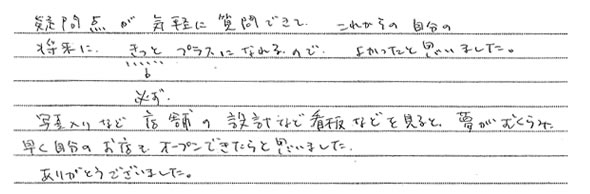 疑問点が気軽に質問できて、これからの自分の
将来に、きっとプラスになれるので、よかったと思いました。
必ず.
写真入りなど店舗の設計など看板などを見ると、夢がむくらみ
早く自分のお店を、オープンできたらと思いました。
ありがとうございました。